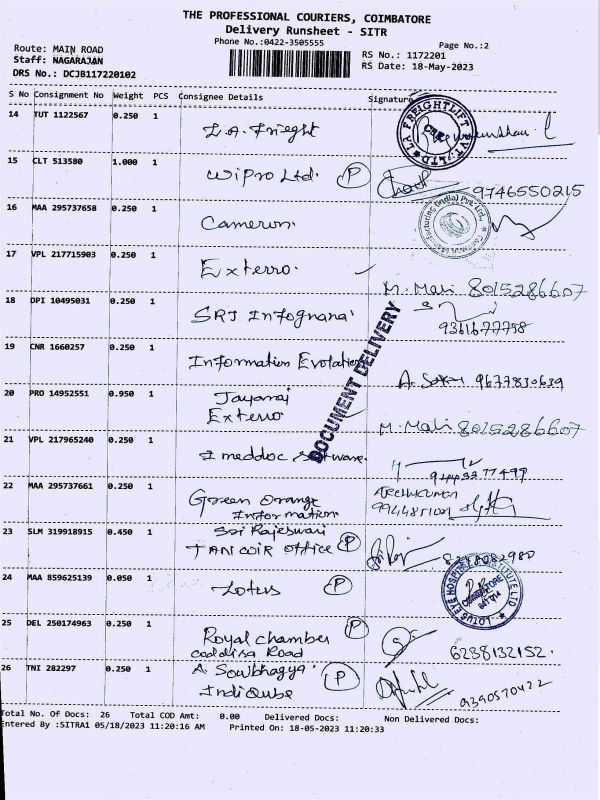 THE PROFESSIONAL COURIERS, COIMBATORE
Delivery Runsheet - SITR
Phone No.:0422-3505555
Page No.:2
Route: MAIN ROAD
Staff: NAGARAJAN
DRS No.: DCJB117220102
RS No.: 1172201
RS Date: 18-May-2023
S No Consignment No Weight PCS Consignee Details Signature
14 TUT 1122567 0.250 1 L.A. Frieght
LA FREIGHTLIFT PVT. LTD
15 CLT 513580 1.000 1 Wipro Ltd. P 9746550215
16 MAA 295737658 0.250 1 Cameron.
Manufacturing (India) Pvt. Ltd.
17 VPL 217715903 0.250 1 Exterro. M. Mali 8015286607
18 OPI 10495031 0.250 1 SRJ Infognana 9361677758
19 CNR 1660257 0.250 1 Information Evolation 9677830639
DOCUMENT DELIVERY
20 PRO 14952551 0.950 1 Jayaraj
Exterro M. Mali 8015286607
21 VPL 217965240 0.250 1 I meddoc software. 9443277499
22 MAA 295737661 0.250 1 Green Orange
Information
23 SLM 319918915 0.450 1 Sri Rajeswari
TANCOIR OFFICE P 8248082980
24 MAA 859625139 0.050 1 Lotus P
LOTUS EYE HOSPITAL INSTITUTE LTD
COIMBATORE
641 014
25 DEL 250174963 0.250 1 Royal chamber P
coddisa Road 6238132152.
26 TNI 282297 0.250 1 A. Sowbhagya
IndiQube P 9390570422
Total No. Of Docs: 26 Total COD Amt: 0.00 Delivered Docs: Non Delivered Docs:
Entered By :SITRA1 05/18/2023 11:20:16 AM Printed On: 18-05-2023 11:20:33